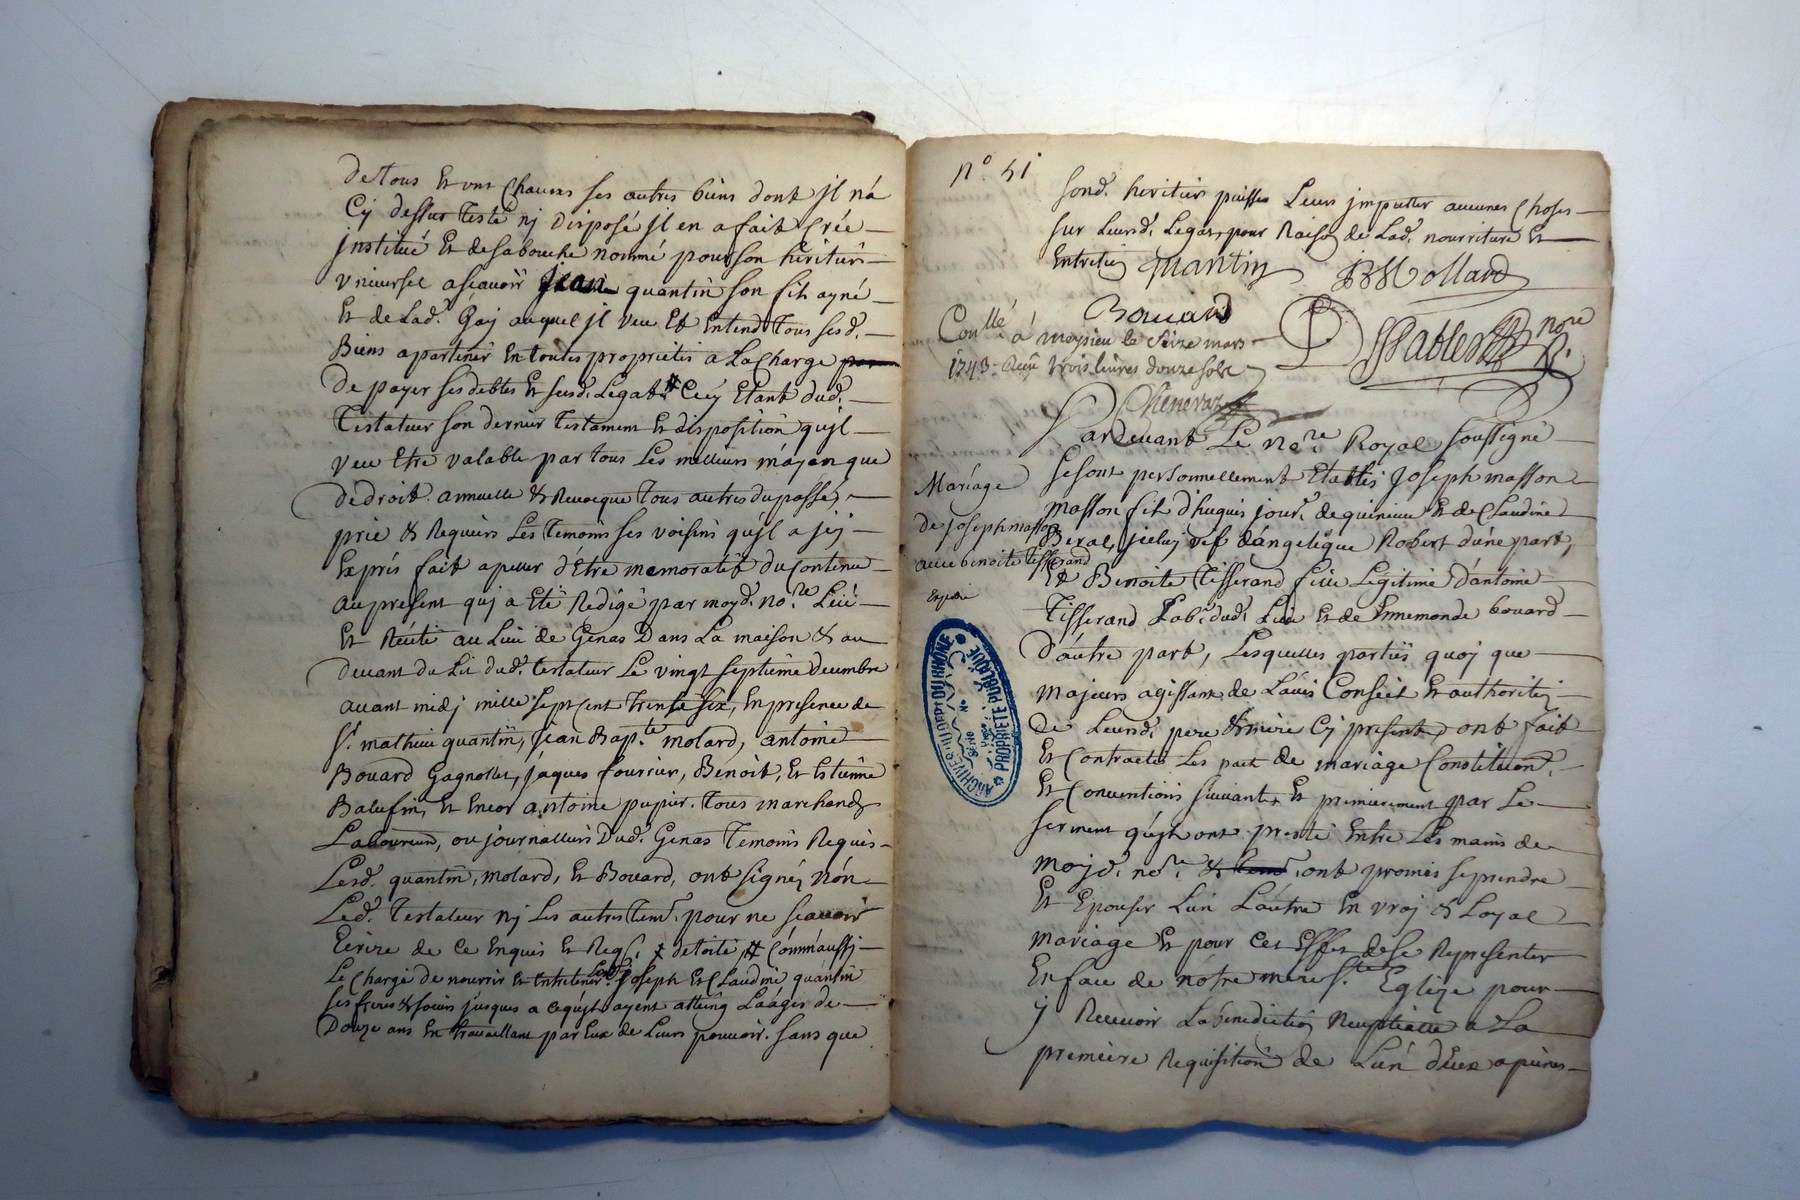 de tous Et uns Chacuns ses autres biens dont jl n'a
Cy dessus Testé nj Disposé jl en a fait Crée
jnstitué Et de sa bouche nommé pour son héritier
Vniversel ascavoir Jean quantin son fils ayné
Et de Lad. Gaj auquel jl veu Et Entend Tous sesd.
Biens apartenir En toutes proprietés a La Charge
De payer ses debtes Et susd. Legats # Cecy Etant dud.
Testateur son dernier Testament Et disposition qu'jl
veu Etre valable par tous Les melieurs moyen que
de droit. annulle & Revocque Tous autres du passé,
prie & Requiers Les Temoins ses voisins qu'jl a jcj
Exprés fait apeller d'Etre memoratif du Contenu
au present quj a Eté Redigé par moyd. no.re Leü
Et Récité au Lieu de Genas Dans La maison & au
devant du Lit dud. testateur Le vingt septieme decembre
avant midj mille sept Cent Trente six, En presence de
Sr. mathieu quantin, jean Bap.te molard, antoine
Bouard Gagnollet, jaques fourrier, Benoit, Et Estienne
Balufin, Et Encor antoine pupier. Tous marchands
Laboureurs, ou journalliers Dud. Genas Temoins Requis
Lesd. quantin, molard, Et Bouard, ont signés non
Led. Testateur nj Les autres Tem. pour ne scavoir
Ecrire de Ce Enquis Et Reqs. # Comm'aussj
Le Charge de nourrir Et Entretenir Lesd. Joseph Et Claudine quantin
ses freres & soeurs jusques a Ce qu'jls ayent atteing L'aager de
Douze ans En travaillant par Eux de Leurs pouvoir. sans que
n° 51
sond. heritier puisse Leurs jmputter aucunes Choses
sur Leursd. Legats, pour Raison de Lad. nourriture Et
Entretien quantin JB Mollard
Bouard
Conllé a meysieu le seize mars
1743. Reçu trois livres douze sols
Chenevaz
Pardevant Le no.re Royal soussigné
Mariage
de joseph masson
avec benoite tisserand
Expédié
se sont personnellement Etablis Joseph masson
masson fils d'hugues jour. de quirieux Et de Claudine
Beral, jceluj vef d'angelique Robert d'une part,
Et Benoite Tisserand fille Legitime d'antoine
Tisserand Lab. dud. Lieu Et de Ennemonde bouard
D'autre part, Lesquelles parties quoj que
majeurs agissant de L'avis Conseil Et authorité
de Leursd. pere & mere Cy presents, ont fait
Et Contractés Les pact de mariage Constitution.
Et Conventions suivants, Et premierement par Le
serment qu'jls ont presté Entre Les mains de
moyd. no.re ont promis se prendre
Et Epouser L'un L'autre En vraj & Loyal
mariage Et pour Cet Effet de se Representer
En face de notre mere S.te Eglize pour
y Recevoir La benediction Nuptialle a La
premiere Requisition de L'un d'Eux apeines
ARCHIVES DU DEPT DU RHÔNE
PROPRIÉTÉ PUBLIQUE